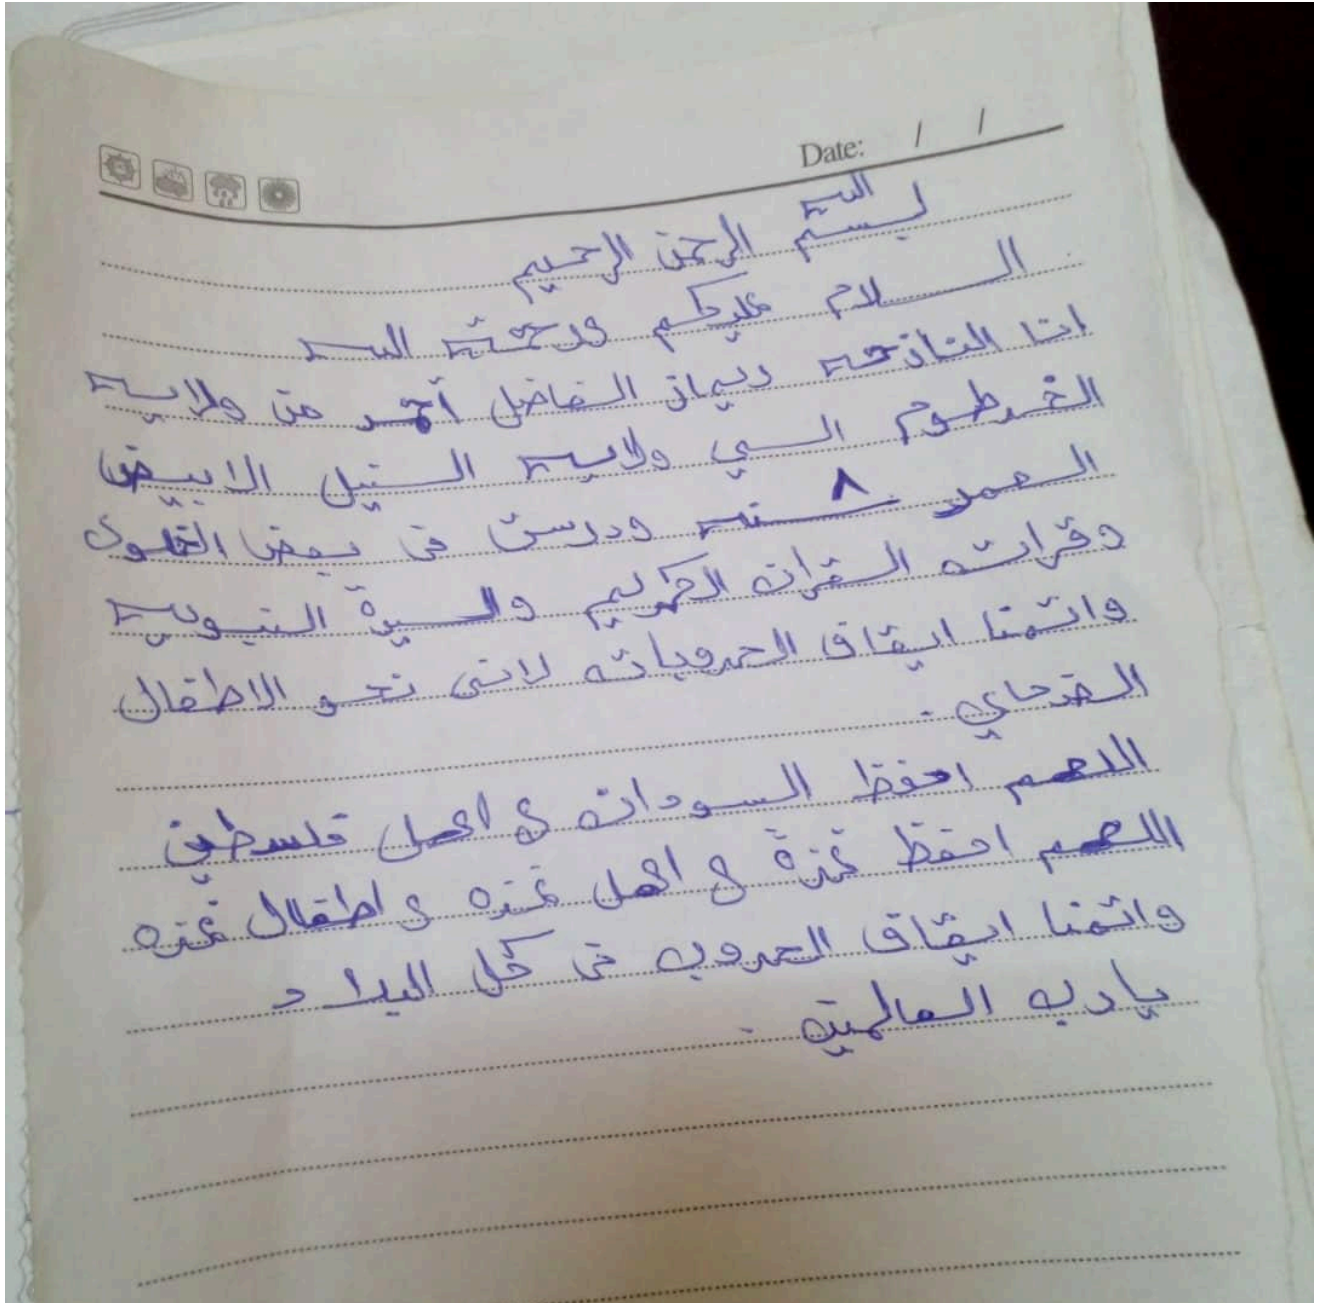 Date: / /
بسم الله الرحمن الرحيم
السلام عليكم ورحمته الله
انا النازحه ريماز الفاضل أحمد من ولايه
الخرطوم الي ولايه النيل الابيض
العمر ٨ سنه ودرست في بعض الخلوى
وقراته القران الكريم والسيرة النبويه
واتمنا ايقاف الحروبات لانني نحو الاطفال
الضحاي .
اللهم احفظ السودان و اهل فلسطين
اللهم احفظ غزة و اهل غزه و اطفال غزه
واتمنا ايقاف الحروب في كل البلاد
يارب العالمين .